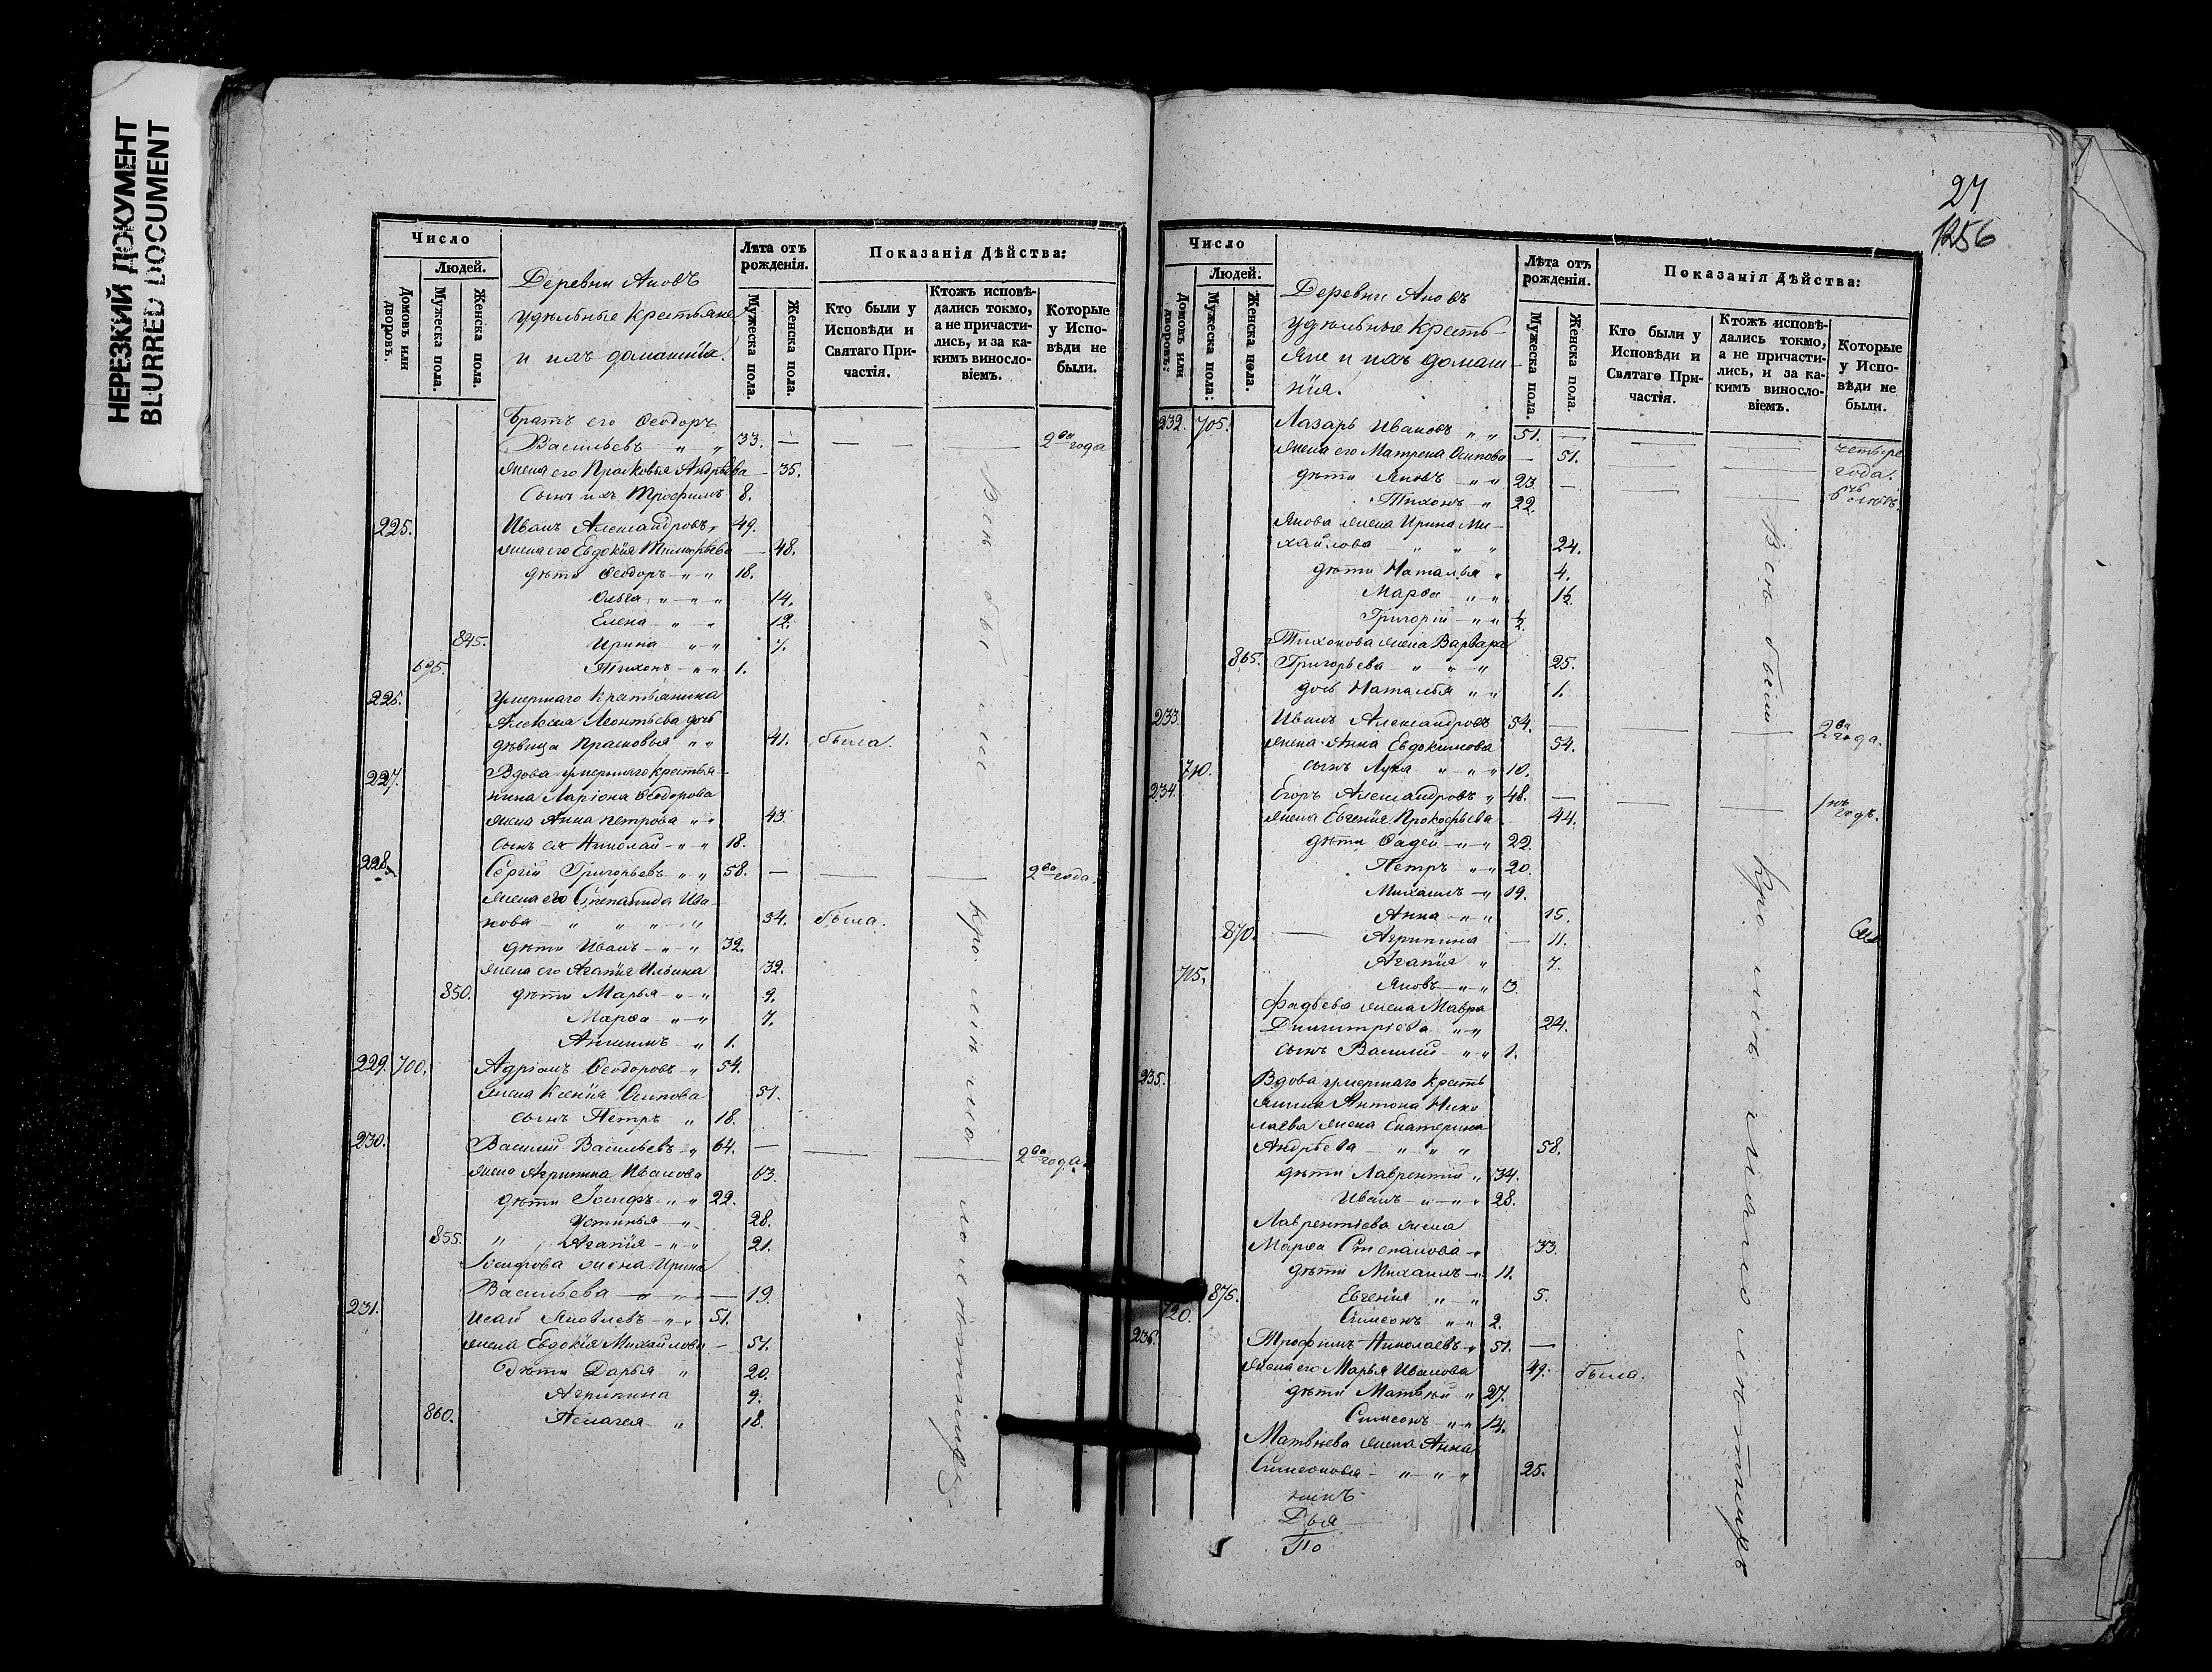 НЕРЕЗКИЙ ДОКУМЕНТ
BLURRED DOCUMENT
Число
Людей.
Домовъ или дворовъ.
Мужеска пола.
Женска пола.
Деревни Яковъ
удѣльные крестьяне
и ихъ домашнія.
Лѣта отъ рожденія.
Мужеска пола.
Женска пола.
Показанія Дѣйства:
Кто были у Исповѣди и Святаго Причастія.
Ктожъ исповѣдались токмо, а не причастились, и за какимъ винословіемъ.
Которые у Исповѣди не были.
Братъ его Ѳеодоръ
Васильевъ " " 33. — — — 2ва года
Жена его Прасковья Андрѣева — 35.
Сынъ ихъ Трофимъ 8.
225. Иванъ Александровъ " 49.
Жена его Евдокія — 48.
дѣти Ѳеодоръ " " 18.
Ольга " " " 14.
Елена " " 12.
845. Ирина " " 7.
695. Тихонъ " " 1.
225. Умершаго крестьянина
Алексѣя Леонтьева дочь
дѣвица Прасковья " " 41. была.
227. Вдова умершаго крестья-
нина Ларіона Ѳеодорова
жена Анна Петрова " " 43
сынъ ея Николай " " 18.
228. Сергій Григорьевъ " " 58. — — — 2ва года.
жена его Степанида Ива-
нова " " " " 54. была.
дѣти Иванъ " " 32.
жена его Агапія Ильина 32.
850. дѣти Марья " " 9.
Марѳа " " 7.
" 1.
229. 700. Адріанъ Ѳеодоровъ " 54.
жена Ксенія Осипова 51.
сынъ Петръ " 18.
230. Василій Васильевъ " 64. — — — 2ва года.
жена Агрипина Иванова 63.
дѣти Іосифъ " " 22.
Устинья " 28.
855. " Агапія " " 21.
Іосифова жена Ирина
Васильева — " — 19.
231. Исай Яковлевъ " " 51.
жена Евдокія Михайлова — 51.
дѣти Дарья " 20.
Агрипина 9.
860. Пелагея " 18.
Всѣ были
Кро мѣ мало
27
1256
Число
Людей.
Домовъ или дворовъ:
Мужеска пола:
Женска пола.
Деревни Яковъ
удѣльные кресть-
яне и ихъ домаш-
нія.
Лѣта отъ рожденія.
Мужеска пола.
Женска пола.
Показанія Дѣйства:
Кто были у Исповѣди и Святаго Причастія.
Ктожъ исповѣдались токмо, а не причастились, и за какимъ винословіемъ.
Которые у Исповѣди не были.
232. 705. Лазарь Ивановъ " " 51. — — — четыре
жена его Матрена Осипова — 51. — — года.
дѣти Яковъ " " 23. — — —
Тихонъ " 22.
Якова жена Ирина Ми-
хайлова " " " 24.
дѣти Наталья " 4.
Марѳа " " 1½.
Григорій " " ½.
Тихонова жена Варвара
865. Григорьева " " " 25.
дочь Наталья " " 1.
233. Иванъ Александровъ 54. — — — 2ва года.
жена Анна Евдокимова 54.
710. сынъ Лука " " " 10.
234. Егоръ Александровъ " 48. — — — 1нъ годъ.
жена Евгенія Прокофьева 44.
дѣти Ѳадей " " 22.
Петръ " " 20.
Михаилъ " 19.
Анна " " 15.
870. — Агрипина — 11.
Агапія " 7.
715. Яковъ " " 3.
Фадѣева жена Мавра
Димитріева " " 24.
сынъ Василій " " 1.
235. Вдова умершаго кресть
янина Антона Нико
лаева жена Екатерина
Андрѣева " " " 58.
дѣти Лаврентій " 34.
Иванъ " " " 28.
Лаврентіева жена
Марѳа Степанова " 33.
дѣти Михаилъ " 11.
875. Евгенія " " 5.
720. Симеонъ " " 2.
236. Трофимъ Николаевъ " 51. —
жена его Марья Иванова 49. была.
дѣти Матвѣй " 27.
Симеонъ " " 14.
Матвѣева жена Анна
Симеонова " " " 25.
Всѣ были
Кро мѣ мало
По